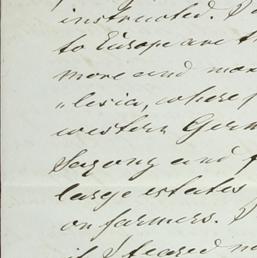 instructed. I
to Europe are th
more and more
"lesia, where
western Germ
Saxony and
large estates
or farmers. I
if I feared